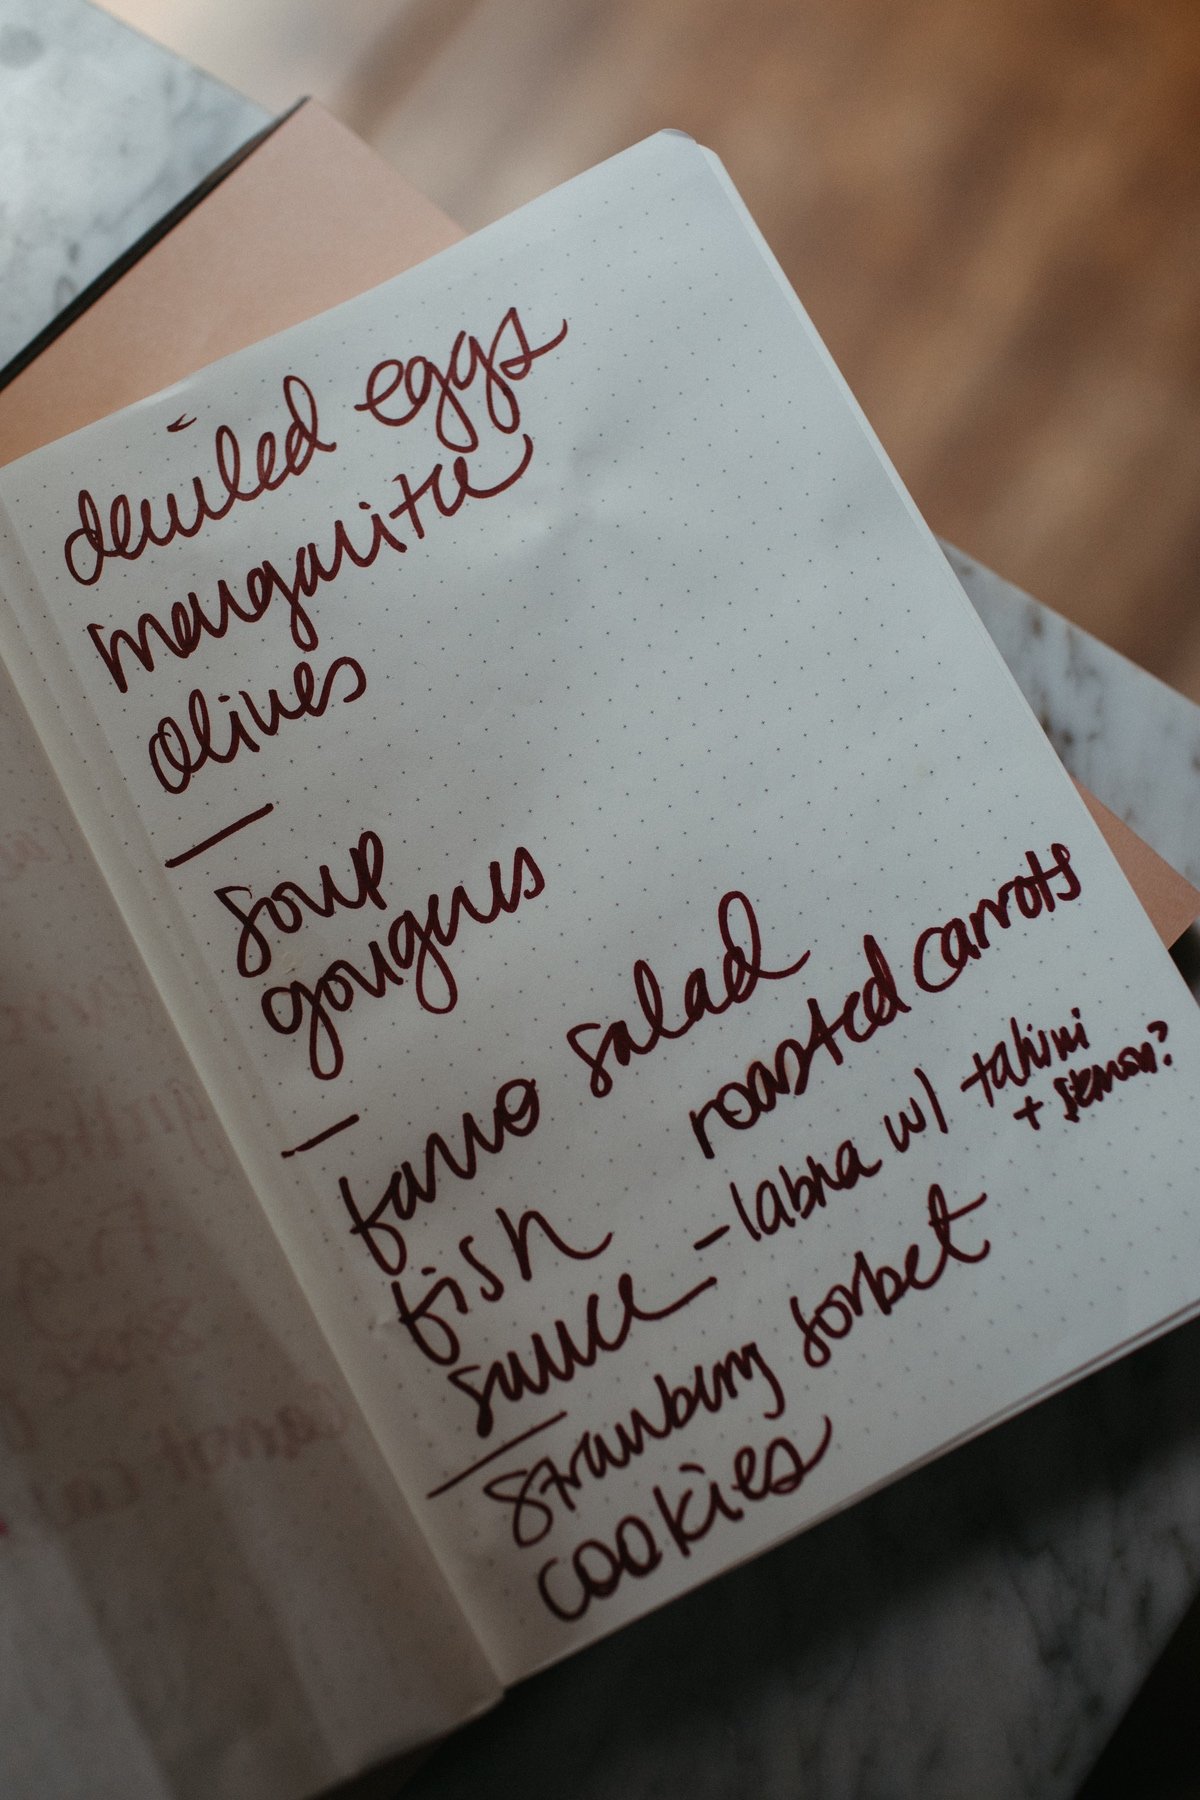 deviled eggs
margarita
olives
soup
gougeres
farro salad
roasted carrots
- labna w/ tahini
+ lemon?
fish
sauce
strawberry sorbet
cookies